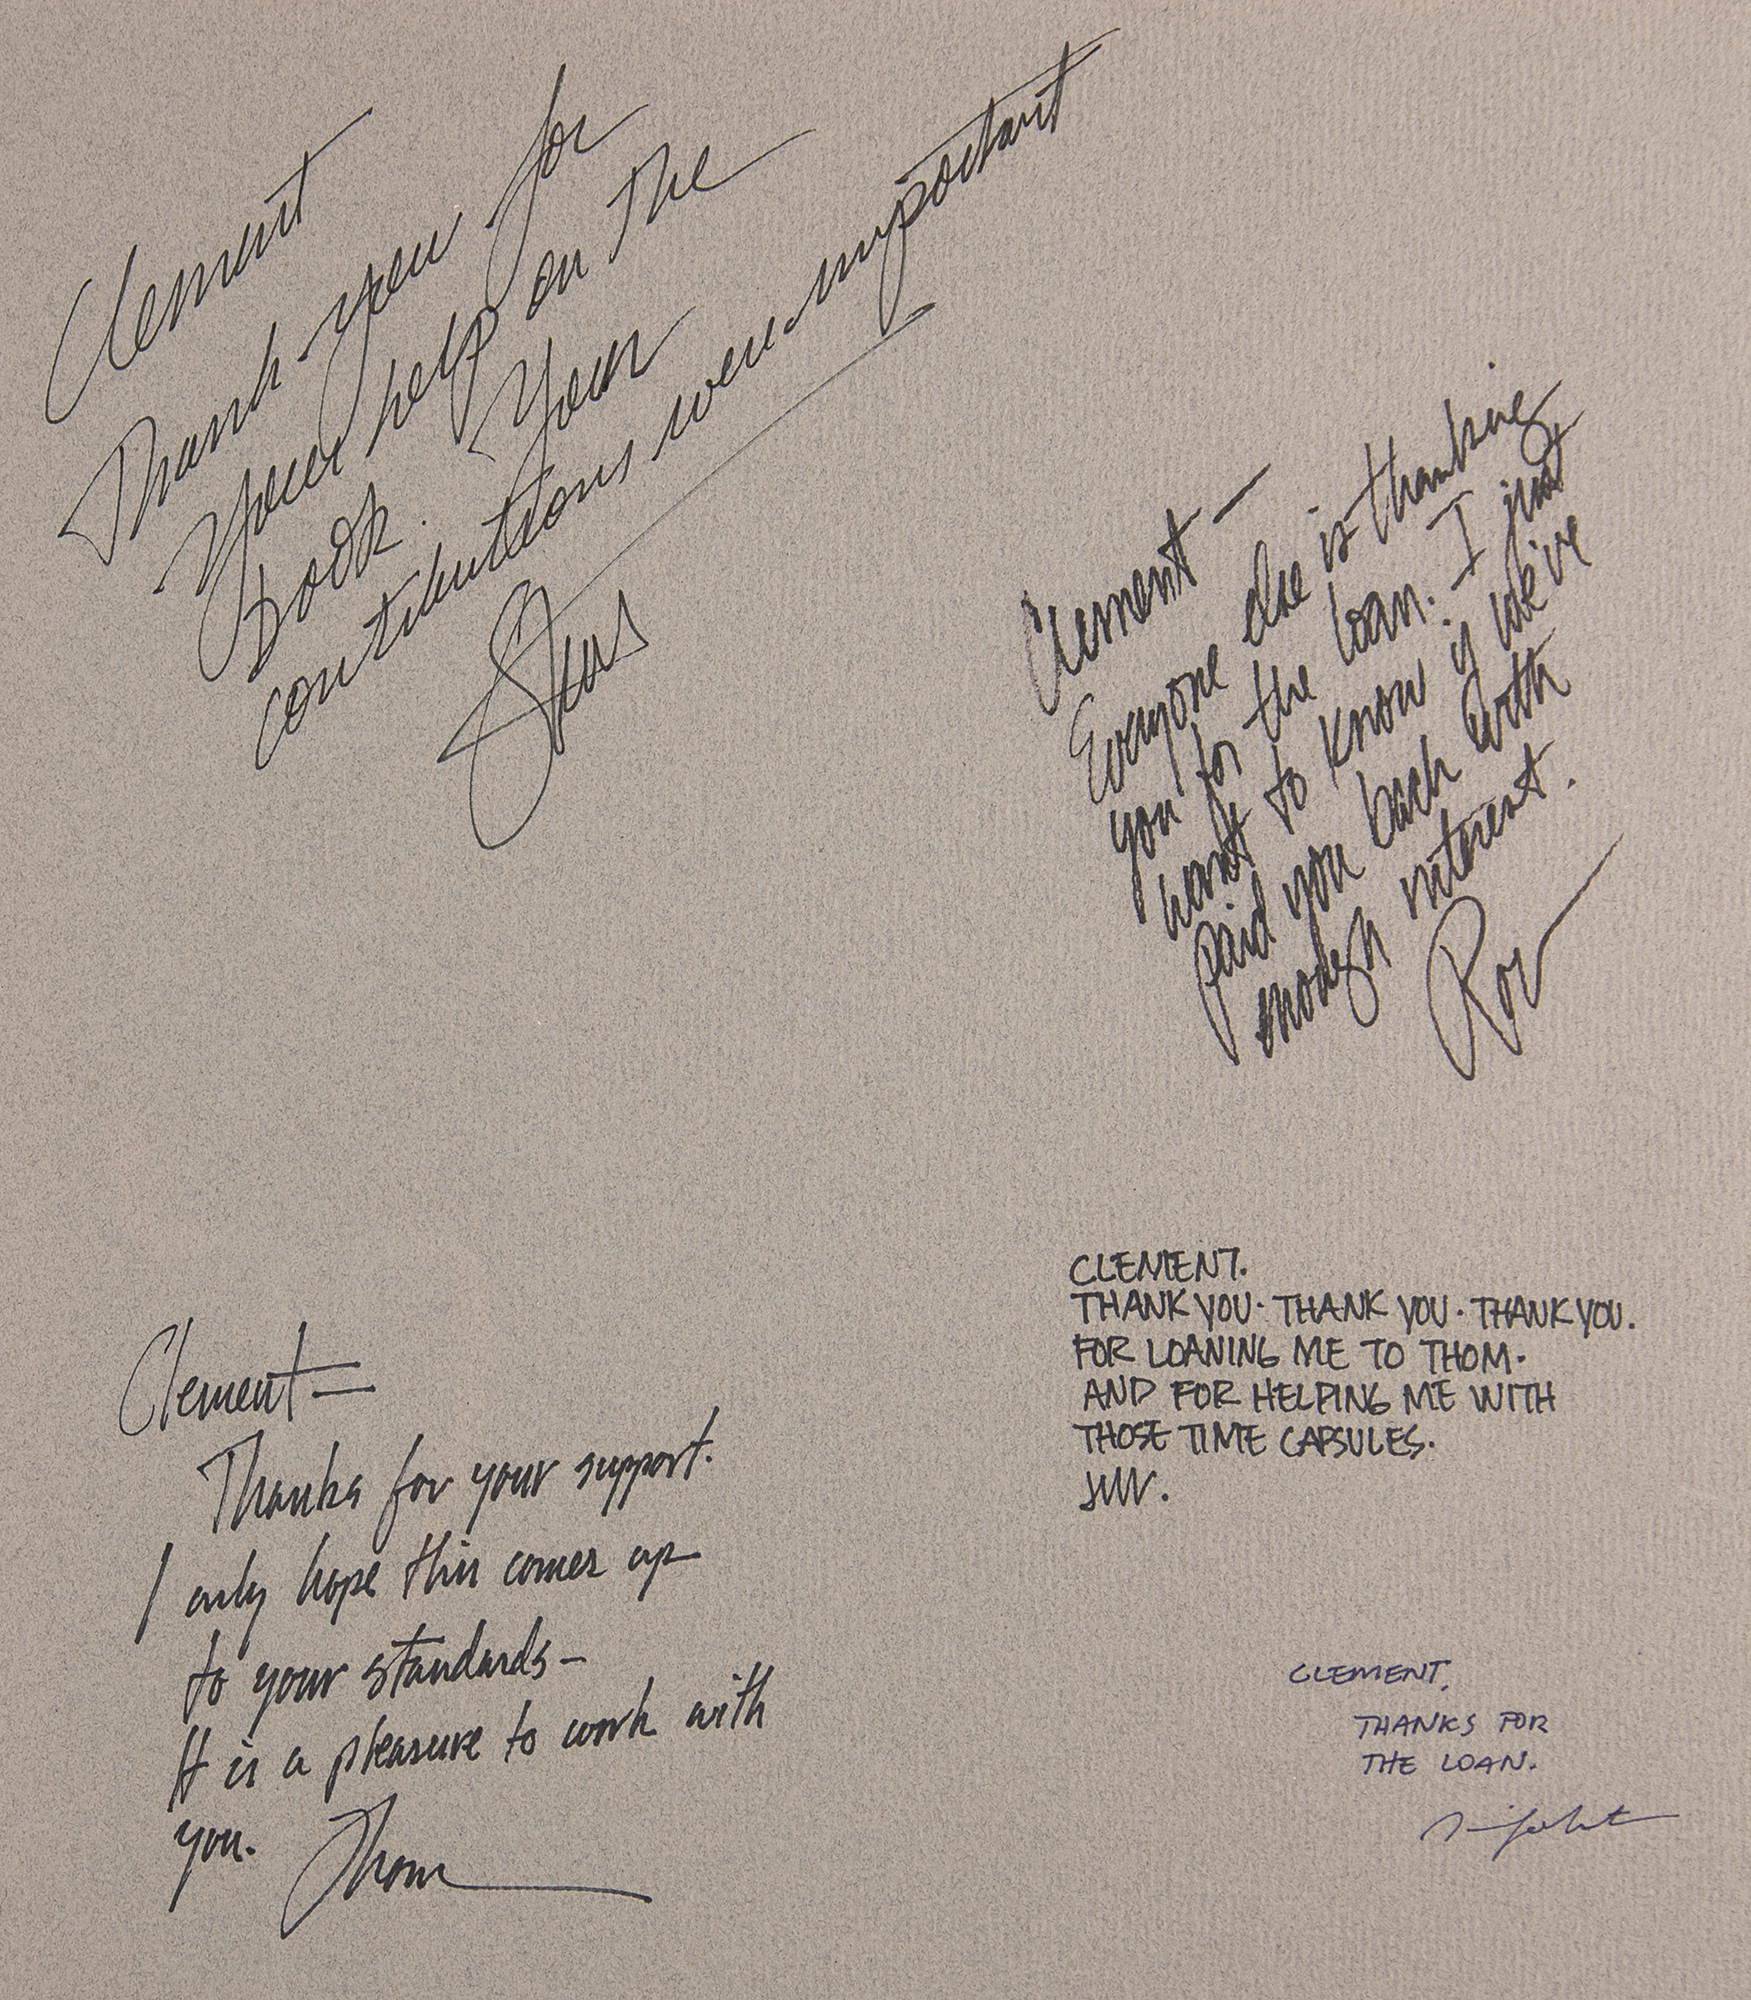 Clement
Thank-you for
your help on the
book. Your
contributions were important
Clement —
Everyone else is thanking
you for the loan. I just
want to know if we've
paid you back with
enough interest.
Roy
Clement —
Thanks for your support.
I only hope this comes up
to your standards —
It is a pleasure to work with
you. Thom
CLEMENT.
THANK YOU · THANK YOU · THANK YOU.
FOR LOANING ME TO THOM.
AND FOR HELPING ME WITH
THOSE TIME CAPSULES.
CLEMENT,
THANKS FOR
THE LOAN.